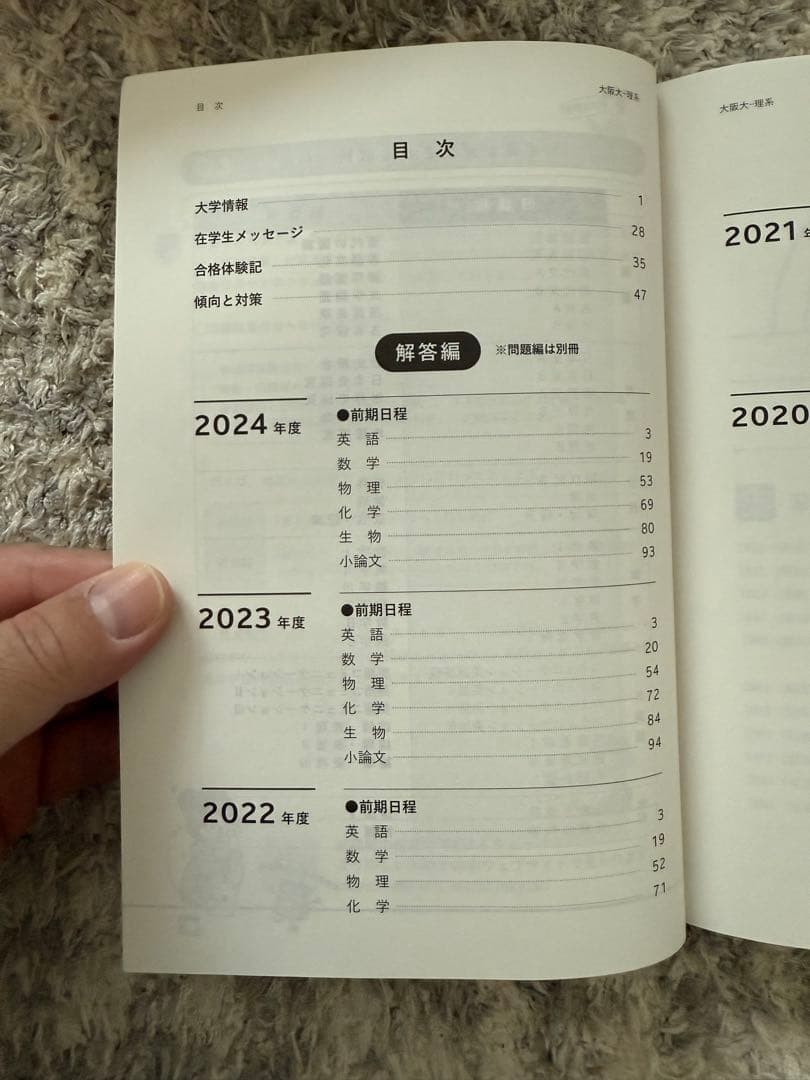 目 次
大阪大-理系
目 次
大学情報 1
在学生メッセージ 28
合格体験記 35
傾向と対策 47
解答編 ※問題編は別冊
2024 年度
●前期日程
英 語 3
数 学 19
物 理 53
化 学 69
生 物 80
小論文 93
2023 年度
●前期日程
英 語 3
数 学 20
物 理 54
化 学 72
生 物 84
小論文 94
2022 年度
●前期日程
英 語 3
数 学 19
物 理 52
化 学 71
大阪大-理系
2021
2020